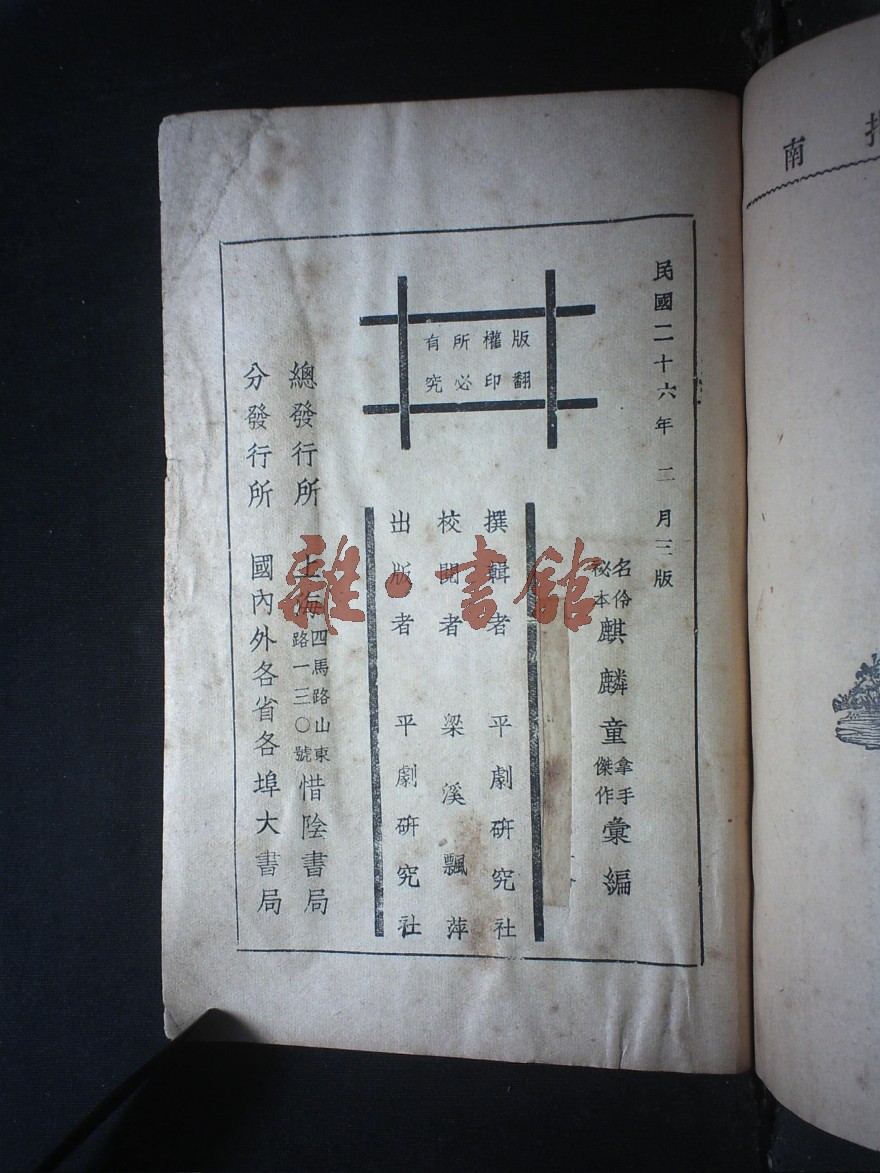 南
民國二十六年二月三版
名伶秘本麒麟童拿手傑作彙編
版權所有
翻印必究
撰輯者 平劇研究社
校閱者 梁溪飄萍
出版者 平劇研究社
總發行所 上海四馬路山東路一三〇號惜陰書局
分發行所 國內外各省各埠大書局
雜·書館